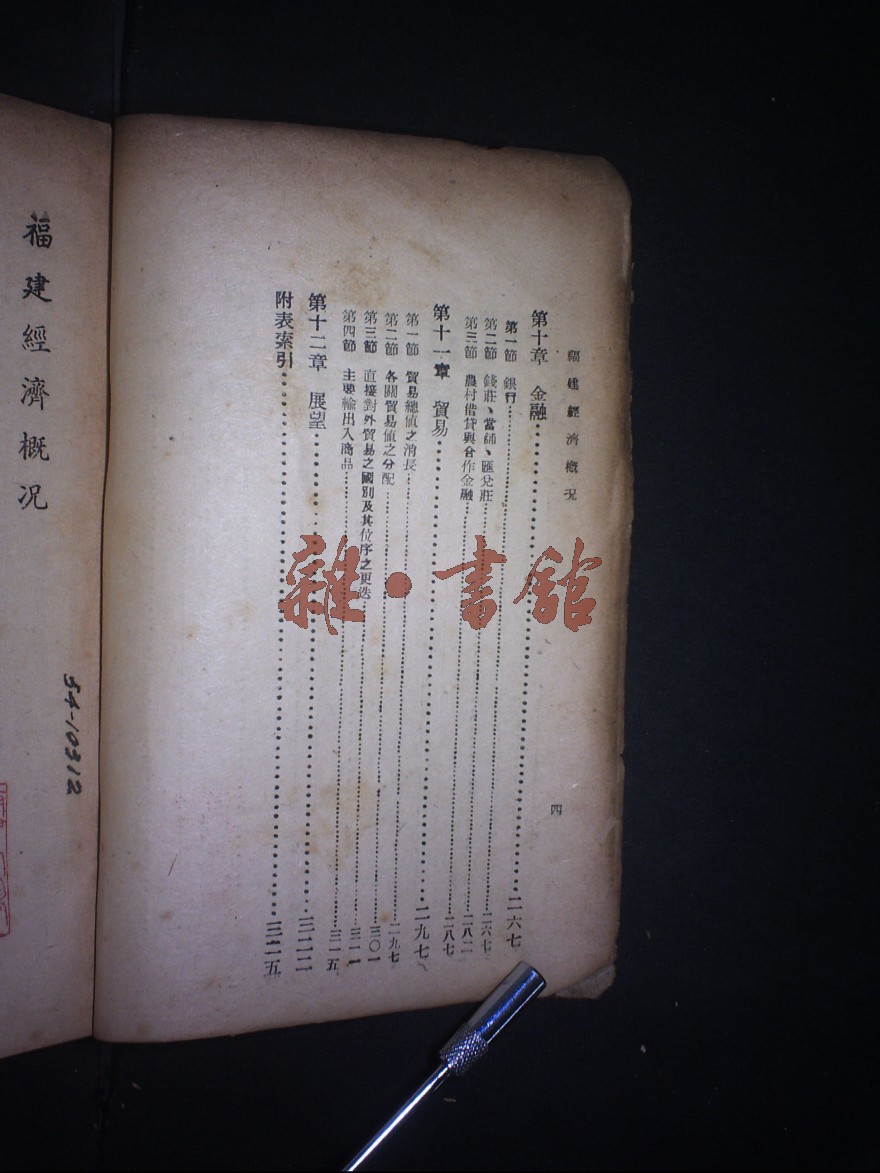 福建經濟概況 四
第十章 金融……二六七
第一節 銀行……二六七
第二節 錢莊、當舖、匯兌莊……二八二
第三節 農村借貸與合作金融……二八七
第十一章 貿易……二九七
第一節 貿易總值之消長……二九七
第二節 各關貿易值之分配……三〇一
第三節 直接對外貿易之國別及其位序之更迭……三一一
第四節 主要輸出入商品……三一五
第十二章 展望……三二二
附表索引……三二五
福建經濟概況
54-10312
雜·書館